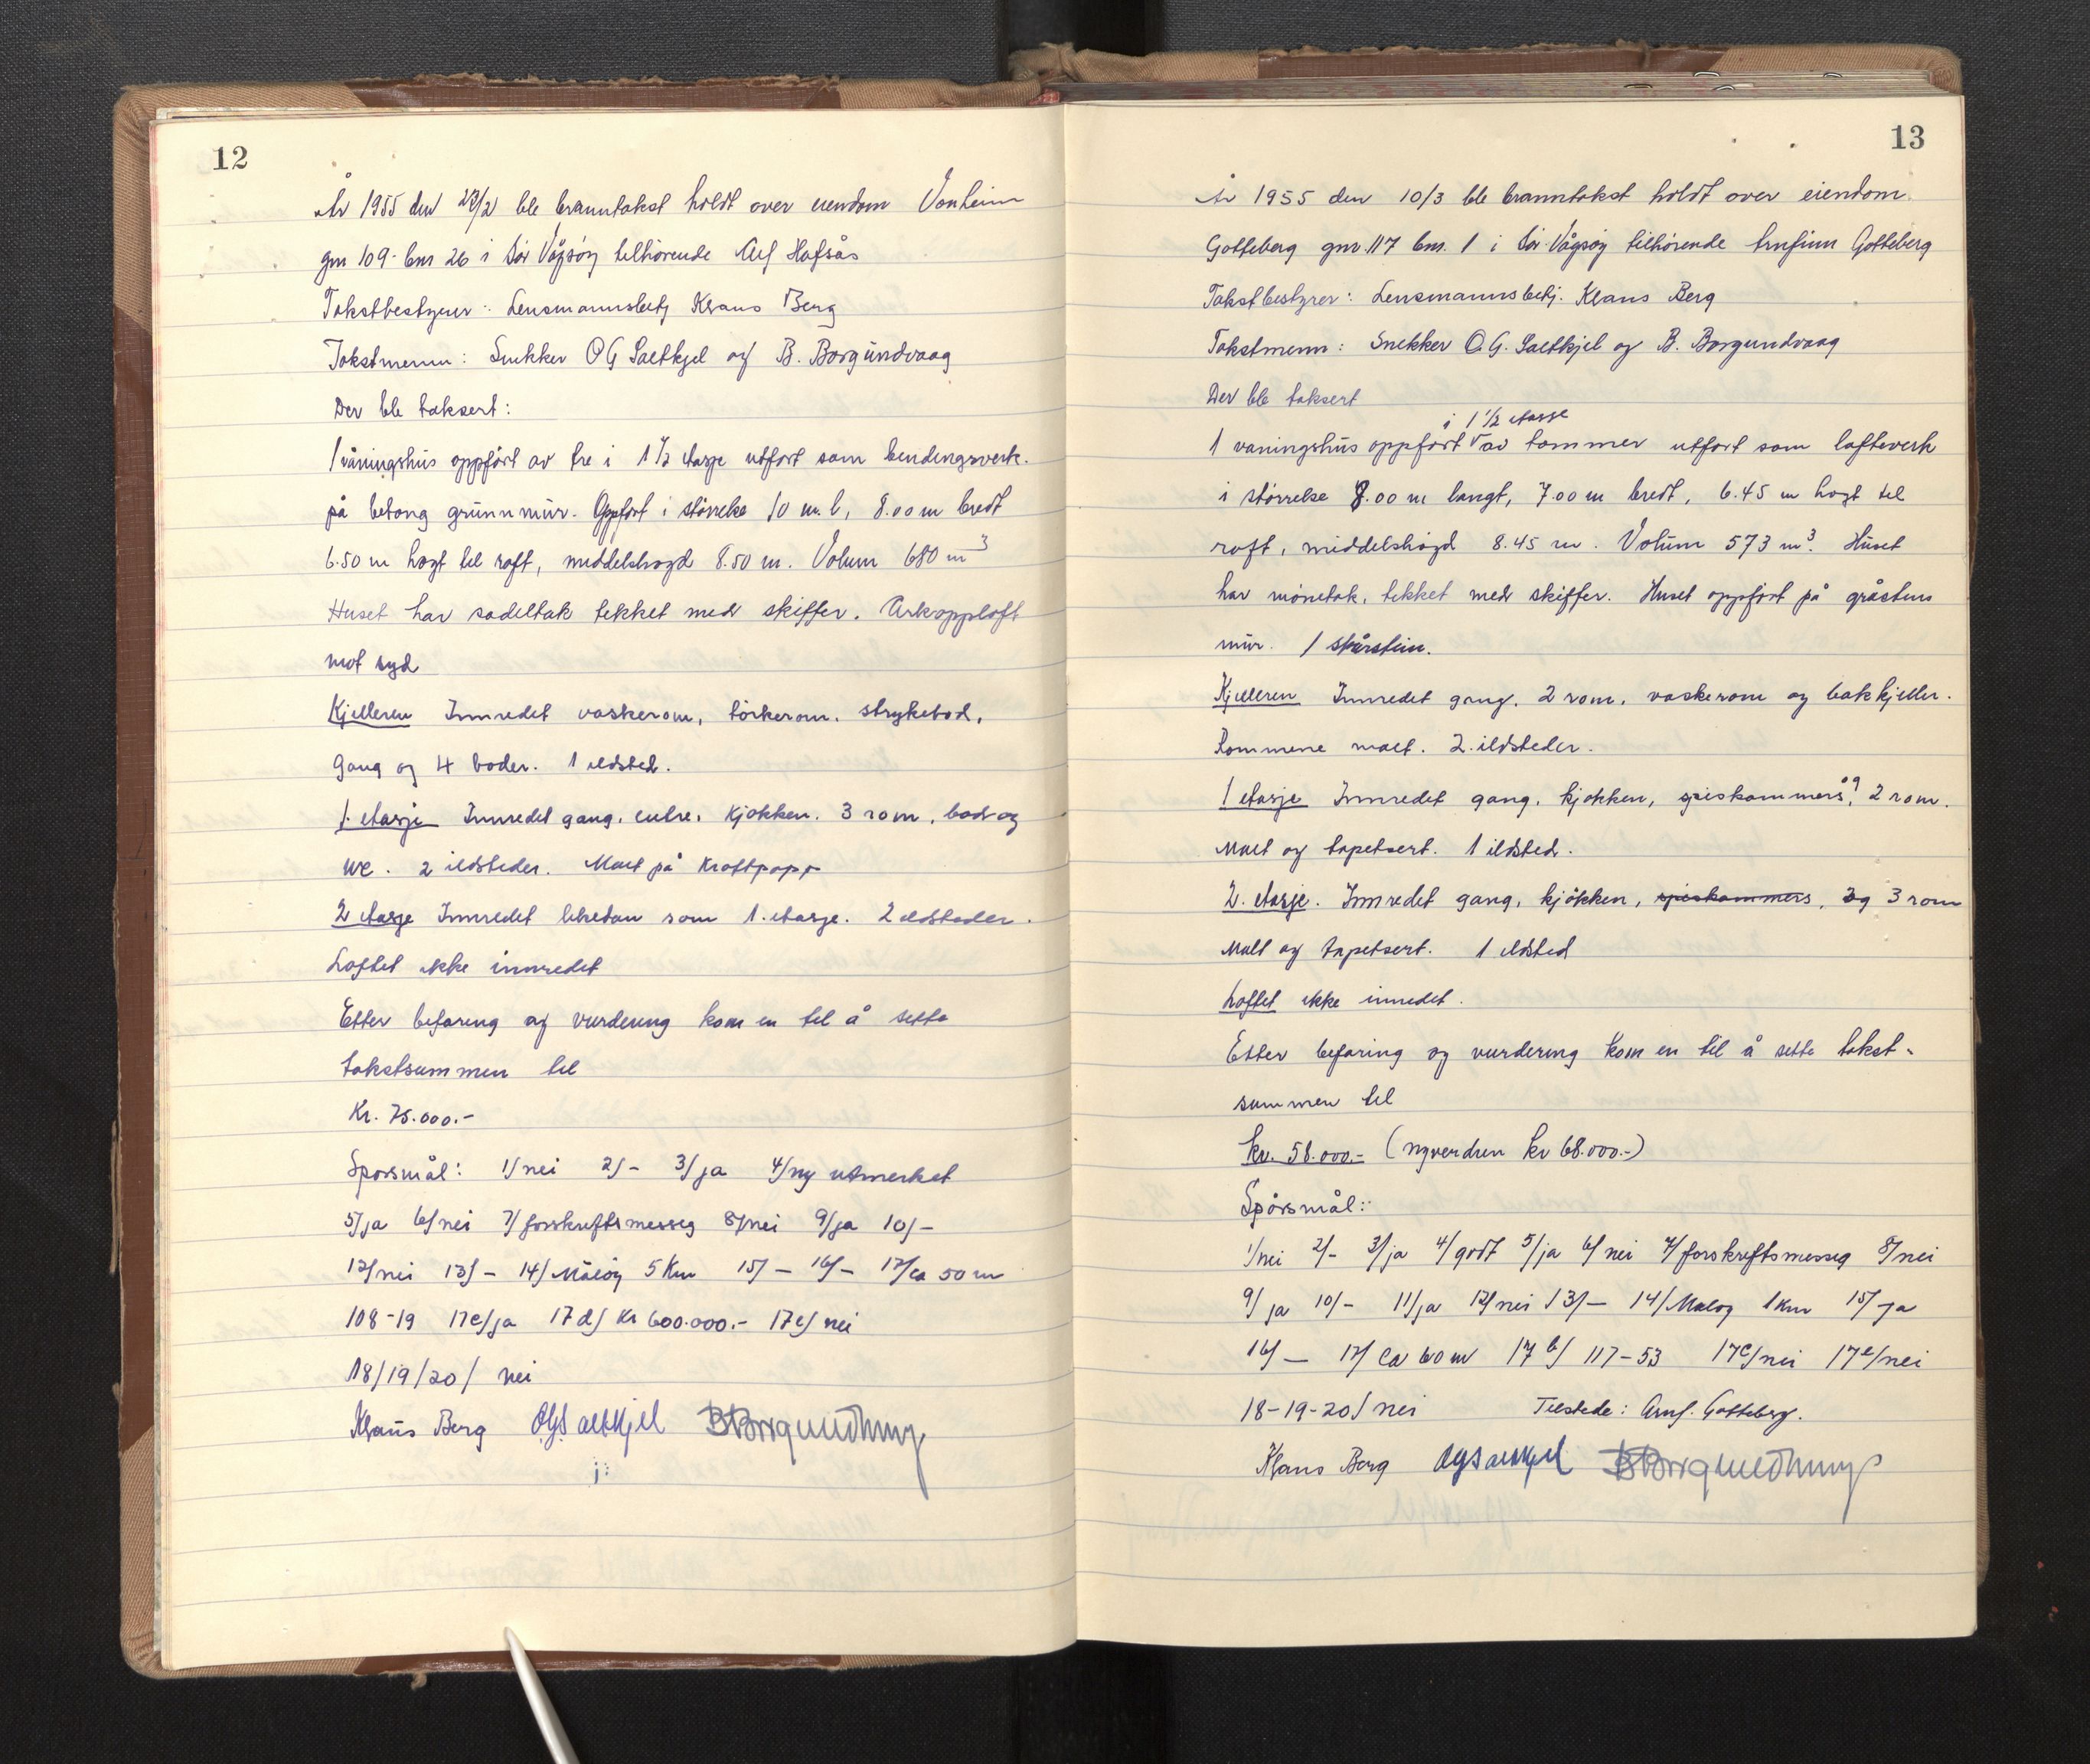 12
År 1955 den 23/2 ble branntakst holdt over eiendom Vonheim
gnr 109 - bnr 26 i Sør Vågsøy tilhørende Alf Hafsås
Takstbestyrer : Lensmannsbetj Klaus Berg
Takstmenn : Snekker O G Saltkjel og B. Borgundvaag
Der ble taksert :
1 våningshus oppført av tre i 1 1/2 etasje utført som bendingsverk.
på betong grunnmur. Oppført i størrelse 10 m. l, 8.00 m bredt
6.50 m høgt til raft, middelshøgd 8.50 m. Volum 680 m3
Huset har sadeltak tekket med skiffer. Arkopploft
mot syd
Kjelleren Innredet vaskerom, tørkerom. strykebod,
gang og 4 boder. 1 ildsted.
1. etasje Innredet gang, entre, kjøkken. 3 rom, bad og
WC. 2 ildsteder. Malt på kraftpapp
2 etasje Innredet likedan som 1. etasje. 2 ildsteder.
Loftet ikke innredet
Etter befaring og vurdering kom en til å sette
takstsummen til
Kr. 75.000.-
Spørsmål : 1/ nei 2/ - 3/ ja 4/ ny utmerket
5/ ja 6/ nei 7/ forskriftsmessig 8/ nei 9/ ja 10/ -
12/ nei 13/ - 14/ Måløy 5 Km 15/ - 16/ - 17/ ca 50 m
108-19 17c/ ja 17 d/ Kr 600.000.- 17e/ nei
18/19/20/ nei
Klaus Berg OG Saltkjel B Borgundvaag
13
År 1955 den 10/3 ble branntakst holdt over eiendom
Gotteberg gnr. 117 bnr. 1 i Sør-Vågsøy tilhørende Arnfinn Gotteberg
Takstbestyrer : Lensmannsbetj. Klaus Berg
Takstmenn : Snekker O.G. Saltkjel og B. Borgundvaag
Der ble taksert
i 1 1/2 etasje
1 våningshus oppført av tømmer utført som lafteverk
i størrelse 8.00 m langt, 7.00 m bredt, 6.45 m høgt til
raft, middelshøgd 8.45 m. Volum 573 m3. Huset
har mønetak, tekket med skiffer. Huset oppført på gråstens
mur. 1 skorstein.
Kjelleren Innredet gang. 2 rom, vaskerom og bakkjeller.
Rommene malt. 2 ildsteder.
1 etasje Innredet gang, kjøkken, spiskammers, og 2 rom.
Malt og tapetsert. 1 ildsted.
2. etasje. Innredet gang, kjøkken, spiskammers, og 3 rom
Malt og tapetsert. 1 ildsted
Loftet ikke innredet.
Etter befaring og vurdering kom en til å sette takst-
summen til
kr. 58.000.- (nyverdien kr 68.000.-)
Spørsmål :
1/ nei 2/- 3/ ja 4/ godt 5/ ja 6/ nei 7/ forskriftsmessig 8/ nei
9/ ja 10/- 11/ ja 12/ nei 13/ - 14/ Måløy 1 Km 15/ ja
16/ - 17/ ca 60 m 17 b/ 117-53 17c/ nei 17e/ nei
18-19-20/ nei Tilstede : Arnf. Gotteberg.
Klaus Berg OG Saltkjel B Borgundvaag